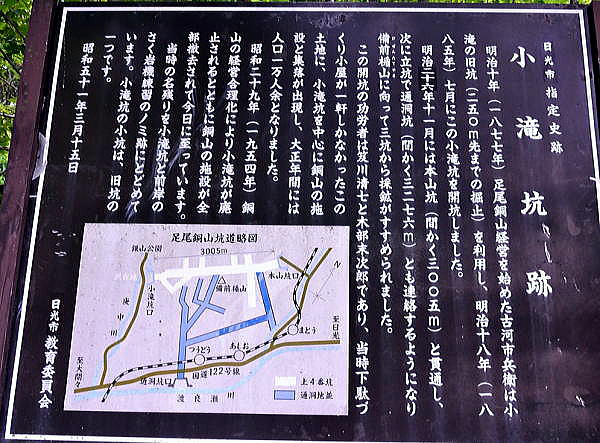 日光市指定史跡
小滝坑跡
明治十年(一八七七年)足尾銅山経営を始めた古河市兵衛は小
滝の旧坑(二五〇m先までの掘止)を利用し、明治十八年(一八
八五年)七月にこの小滝坑を開坑しました。
明治二十六年十一月には本山坑(間かく三〇〇五m)と貫通し、
次に立坑で通洞坑(間かく三二七六m)とも連絡するようになり
備前楯山に向って三坑から採鉱がすすめられました。
この開坑の功労者は笈川清七と木部末次郎であり、当時下駄づ
くり小屋が一軒しかなかったこの
土地に、小滝坑を中心に銅山の施
設と集落が出現し、大正年間には
人口一万人余となりました。
昭和二十九年(一九五四年)銅
山の経営合理化により小滝坑が廃
止されるとともに銅山の施設が全
部撤去されて今日に至っています。
当時の名残りを小滝坑と前岸の
さく岩機練習のノミ跡にとどめて
います。小滝坑の小坑は、旧坑の
一つです。
昭和五十一年三月十五日
日光市教育委員会
足尾銅山坑道略図
3005m
銀山公園
小滝坑口
庚申川
備前楯山
本山坑口
N
まとう
至日光
あしお
つうどう
国道122号線
通洞坑口
渡良瀬川
至大間々
上4番坑
通洞坑並